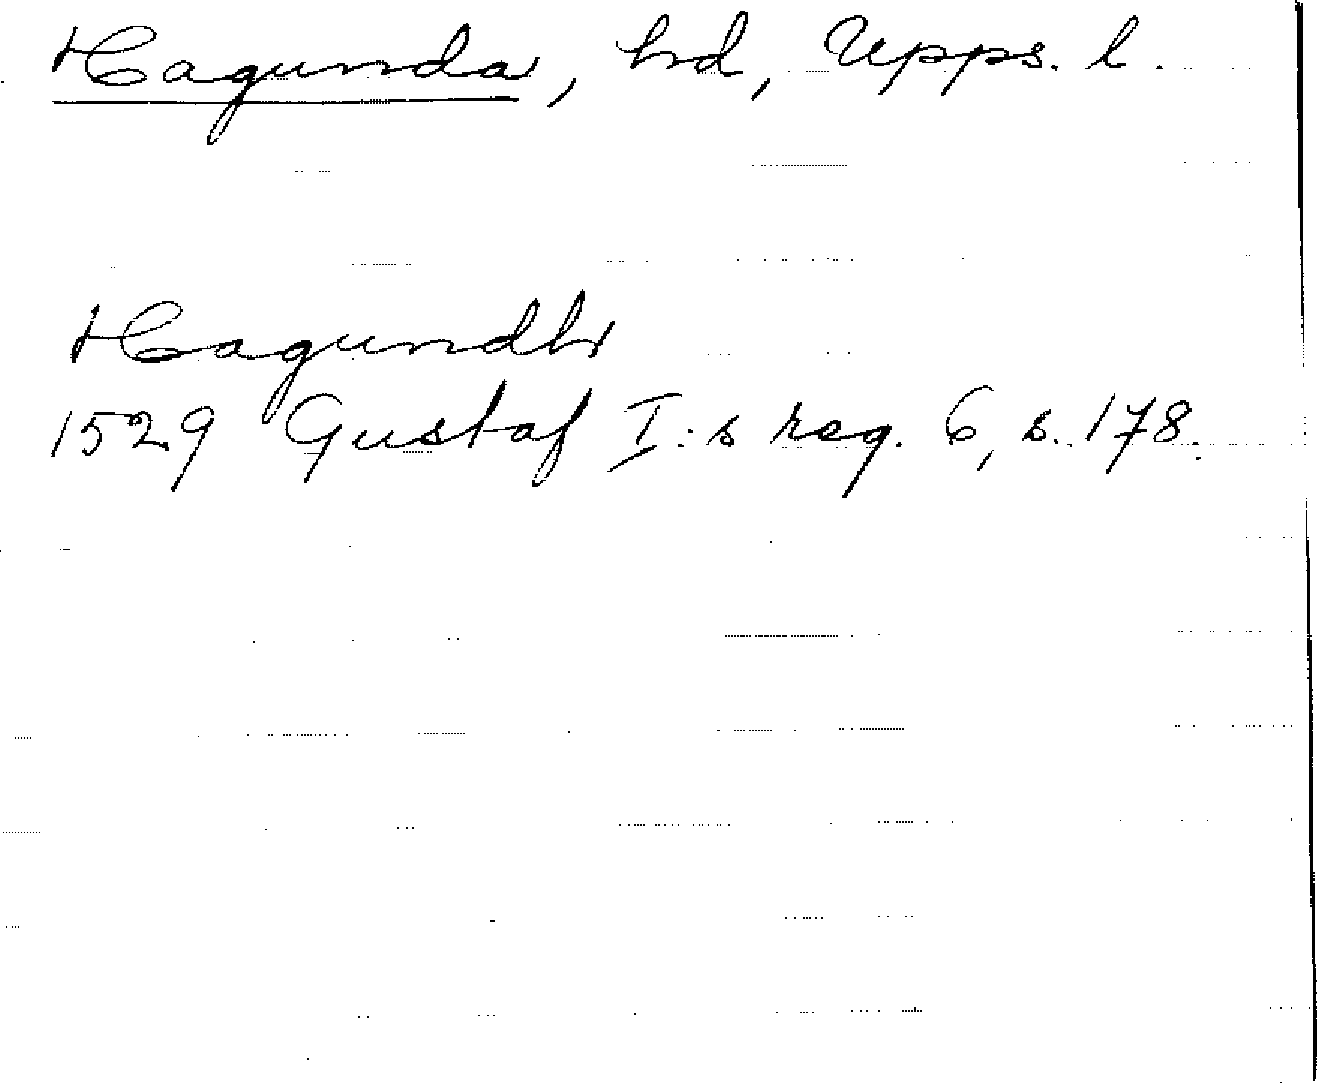 Hagunda, hd, Upps. l.
Hagundh
1529 Gustaf I:s reg. 6, s. 178.